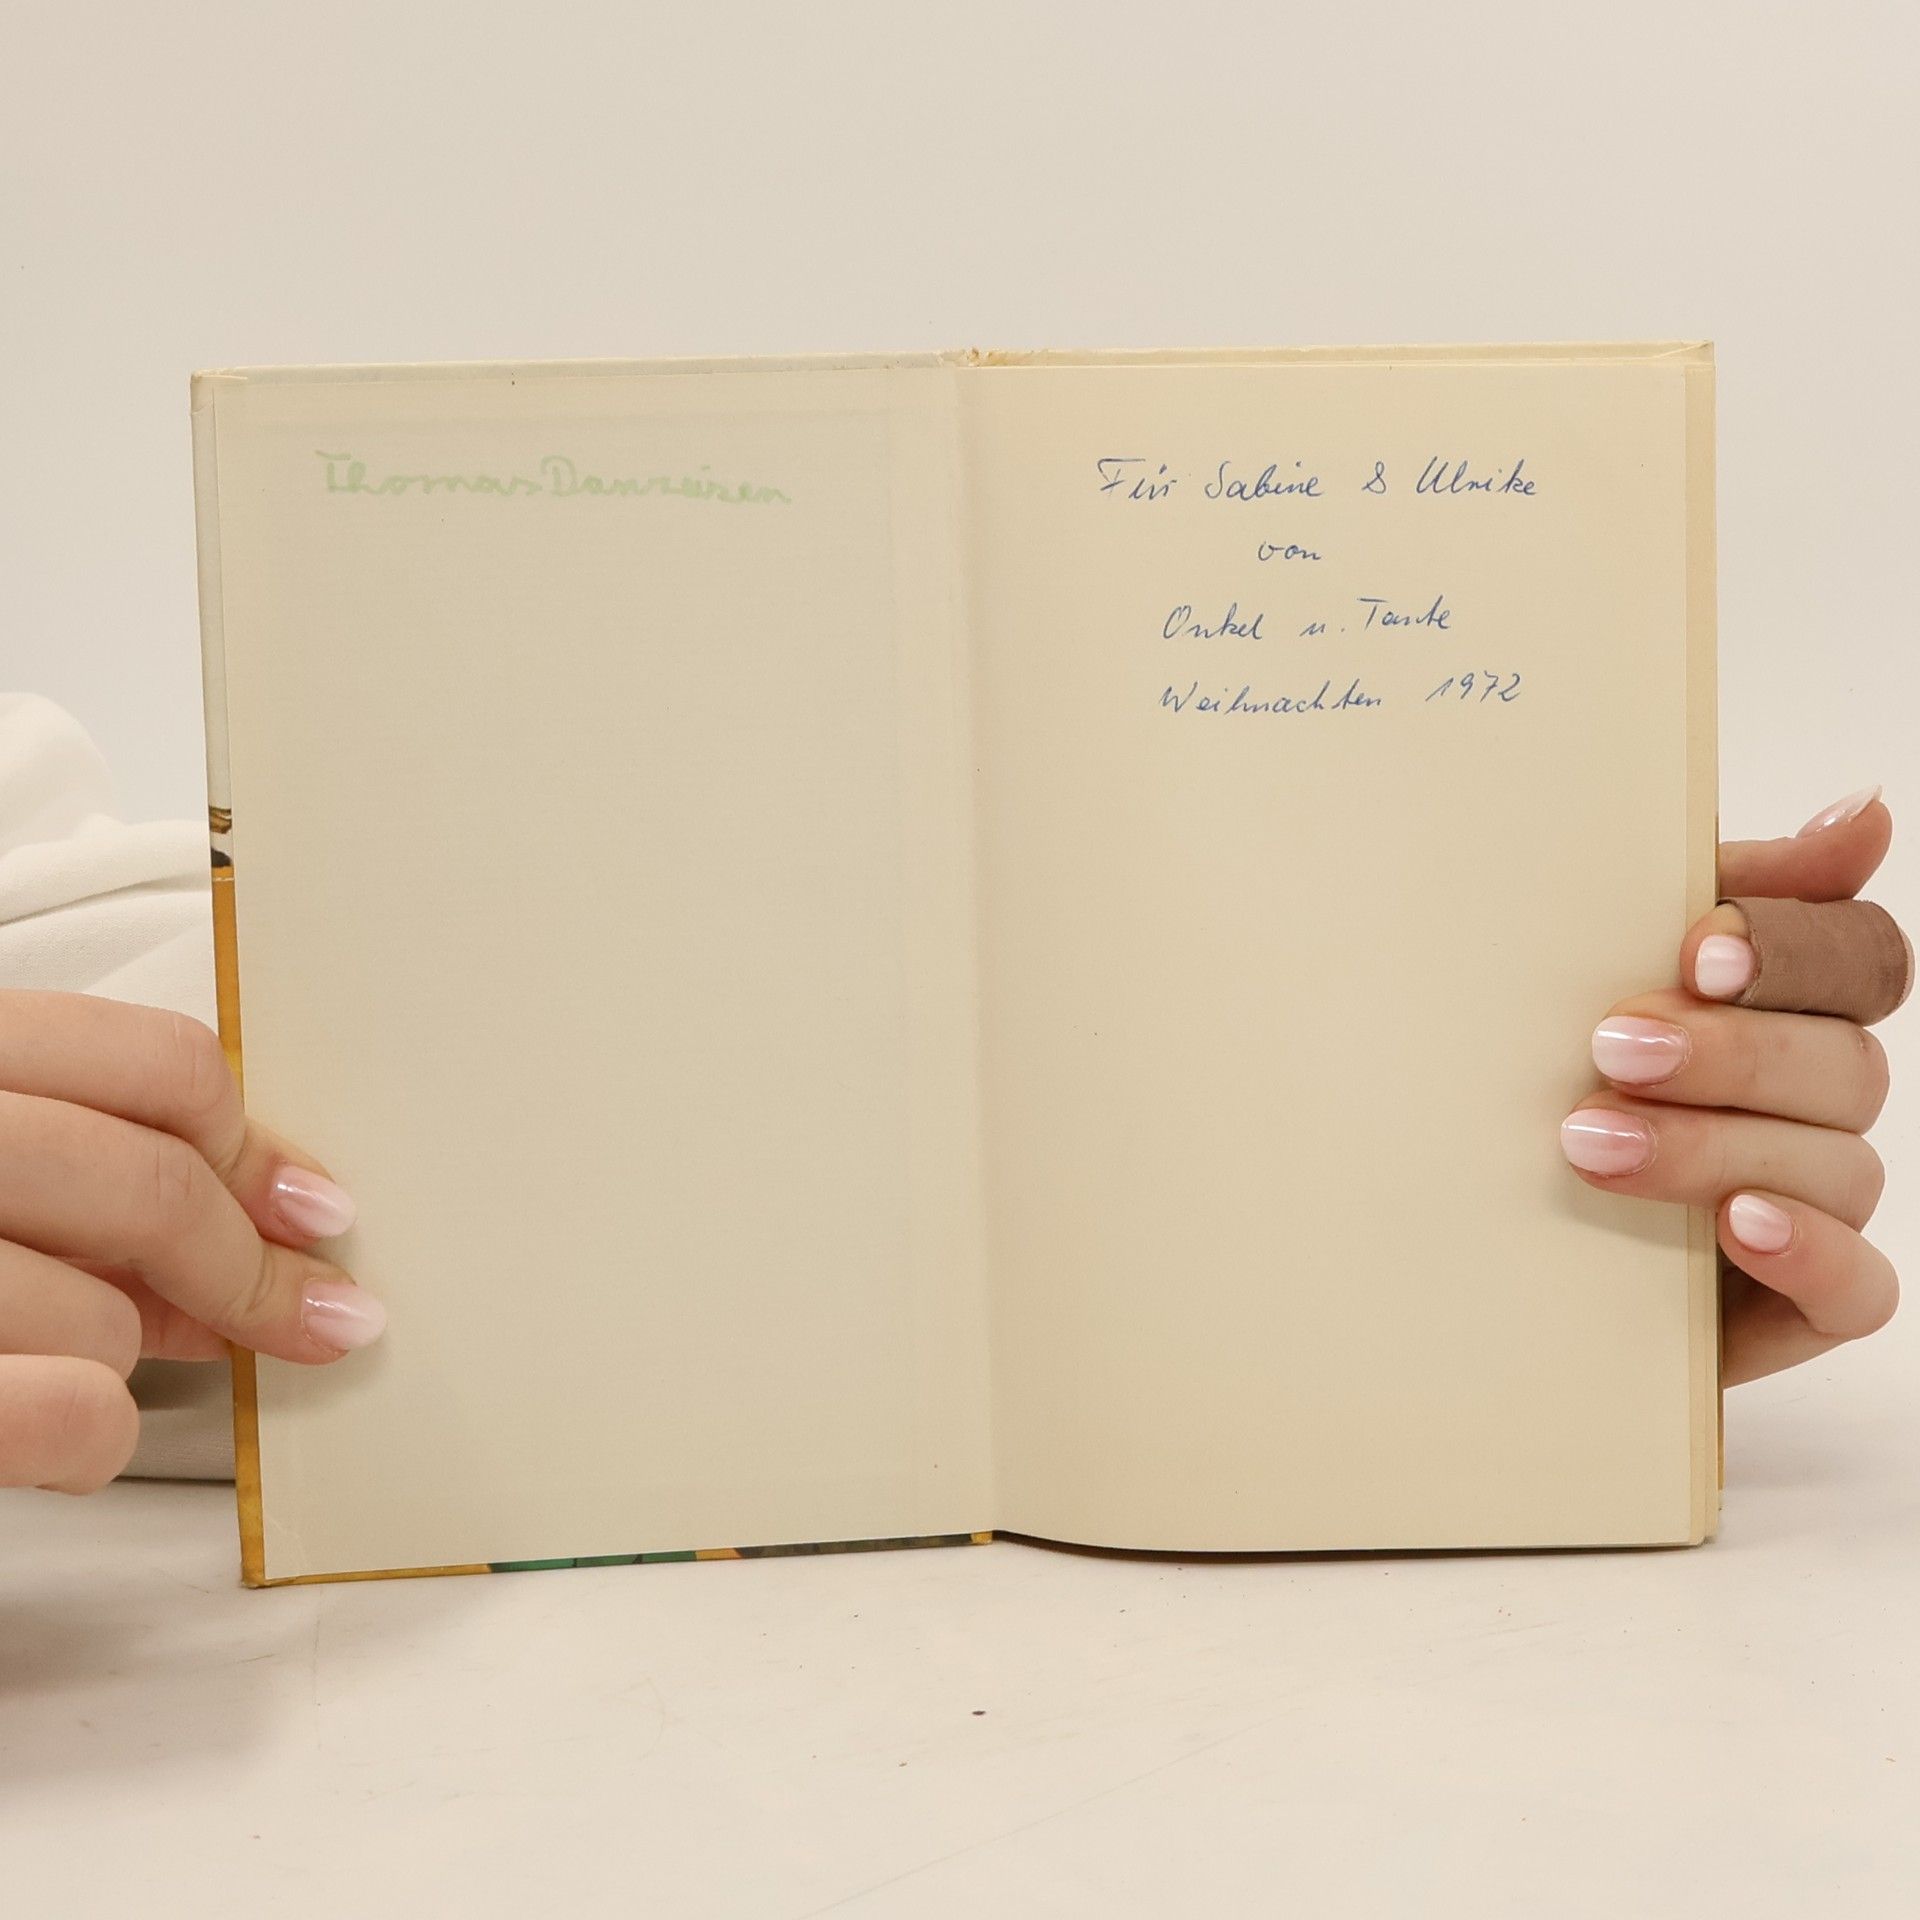 Thomas Danzeisen
Für Sabine & Ulrike
von
Onkel u. Tante
Weihnachten 1972